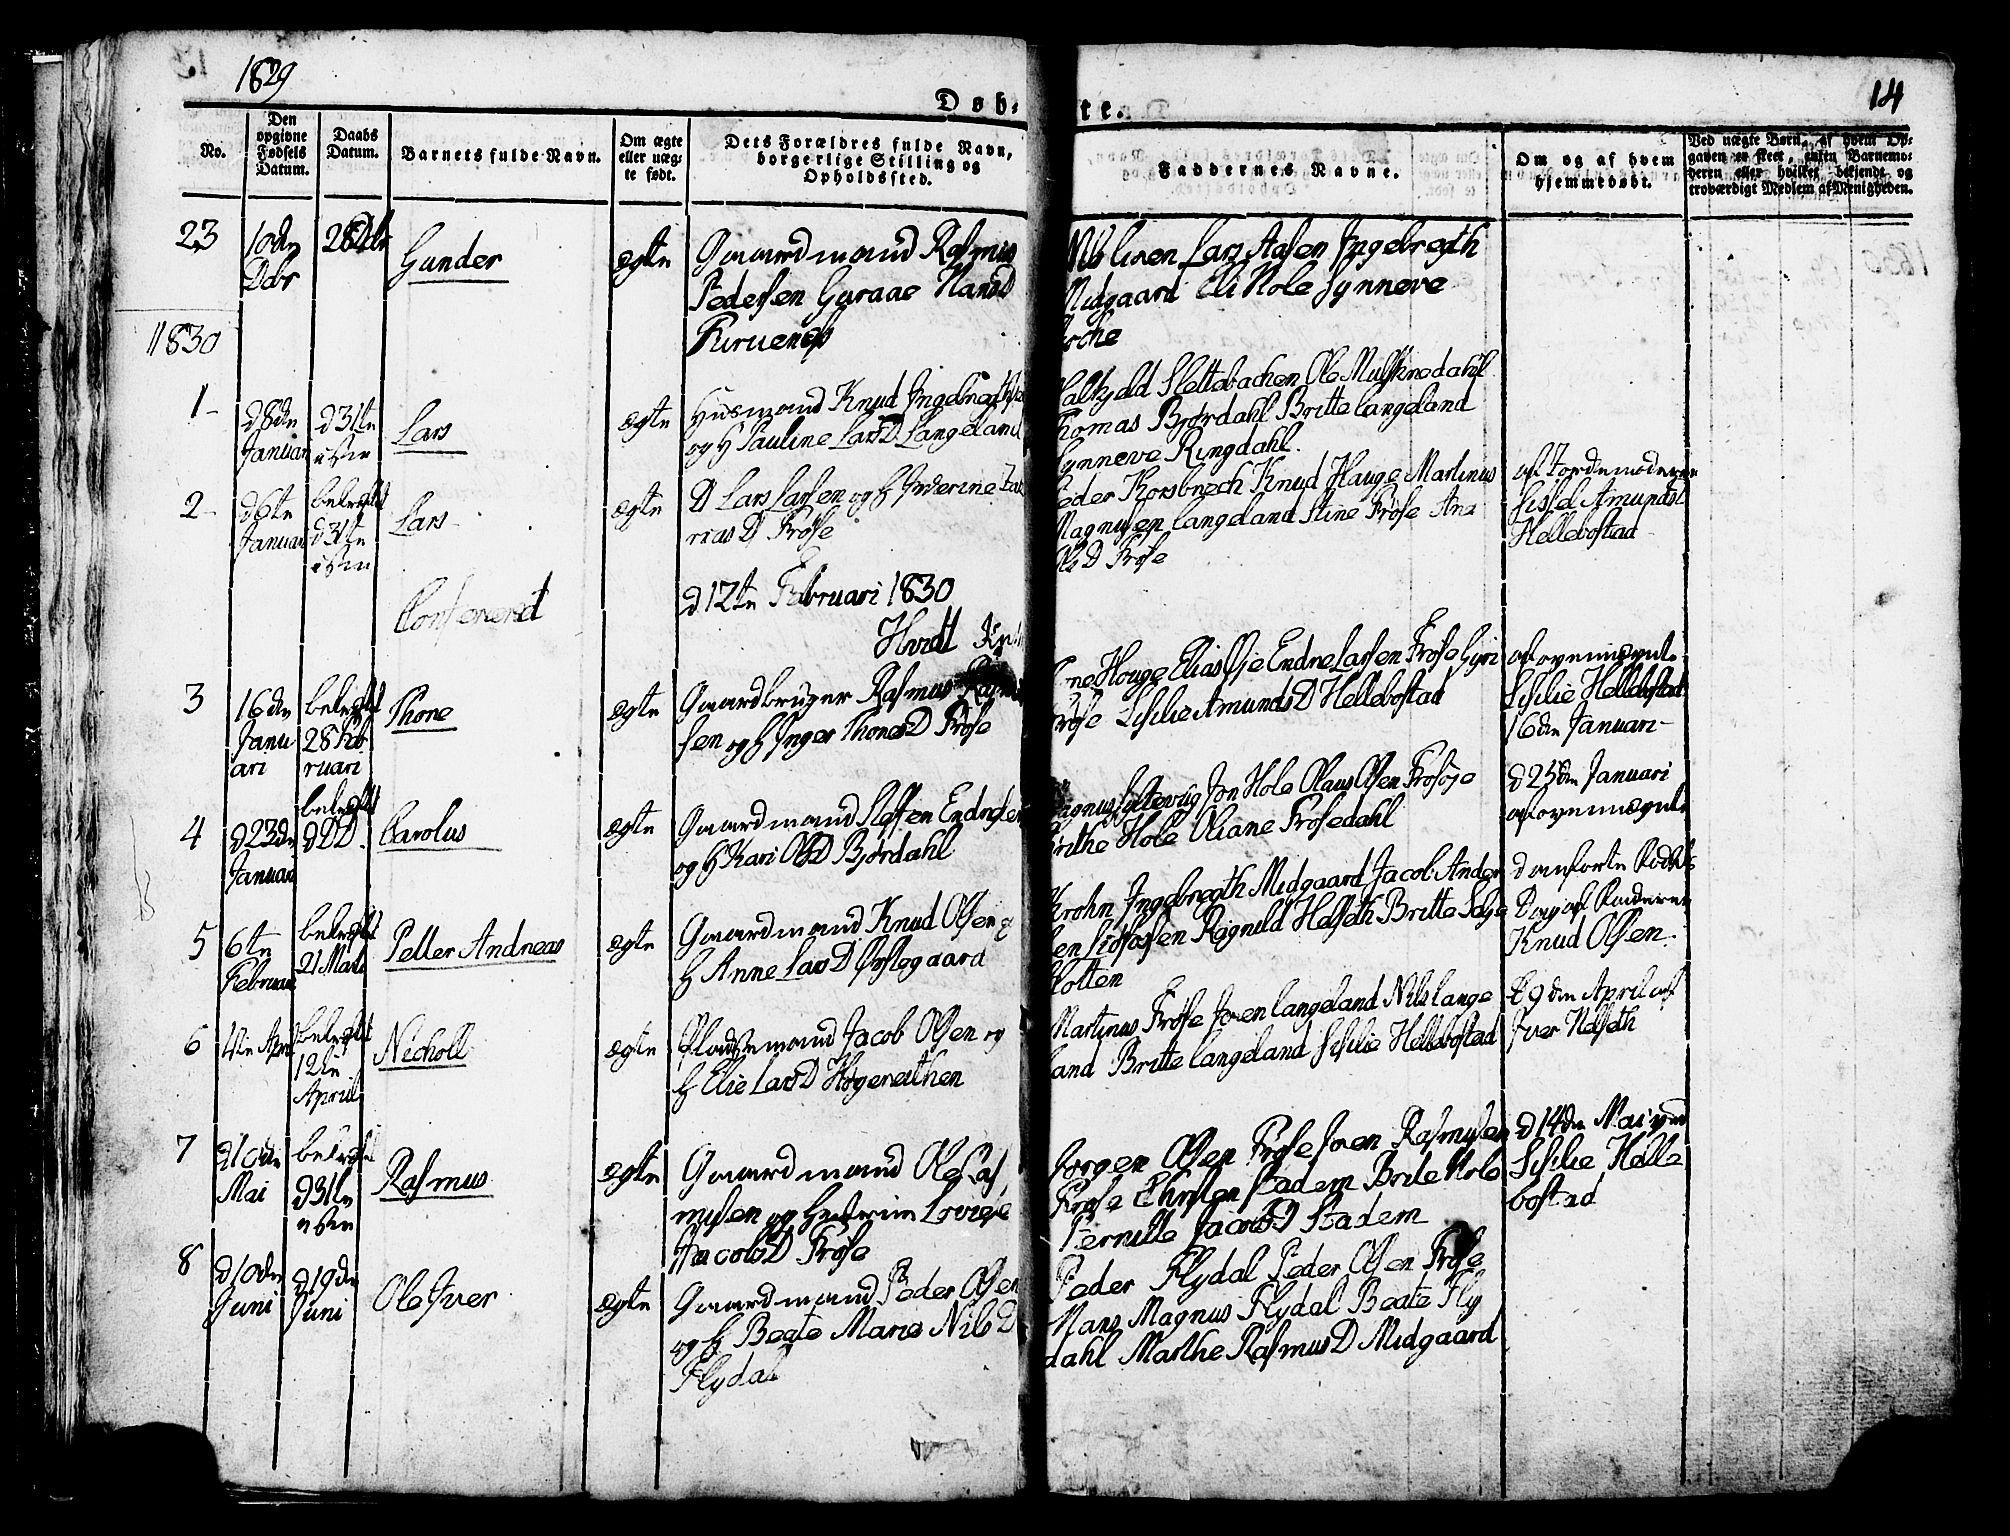 1829
14
Døb-
te.
No.
Den
opgivne
Fødsels
Datum.
Daabs
Datum.
Barnets fulde Navn.
Om ægte
eller uæg-
te født.
Dets Forældres fulde Navn,
borgerlige Stilling og
Opholdssted.
Faddernes Navne.
Om og af hvem
hjemmedøbt.
Ved uægte Børn, af hvem Op-
gaven er skeet, enten Barnemo-
deren eller hvilket bekjendt og
troværdigt Medlem af Menigheden.
23
10de
Dbr
Gunder
ægte
Gaardmand Rasmus
Pedersen Guraae HansD
Furuenes
Lars Aasen Ingebregth
Midgaard Eli Hole Synneve
1830
1
d 8de
Januar
d 31te
Lars
ægte
Husmand Knud
og H Pauline LarsD Langeland
Slettebachen Ole
Thomas Bjørdahl Britte Langeland
Synneve Ringdahl
2
d 6te
Januar
d 31te
Lars
ægte
D Lars Larsen og H
riasD Frøse
Peder Korsbrech Knud Hauge Martinus
Magnusen Langeland Stine Frøse Ana
OlsD Frøse
af Jordemoderen
Sissel AmundsD
Hellebostad
Confereret
d 12te Februari 1830
3
16de
Janu
ari
28 Feb
ruari
Thone
ægte
Gaardbruger Rasmus
sen og H Inger ThoneD Frøse
Houge Elias Øje Endre Larsen Frøse Gyri
Frøse Sisilie AmundsD Hellebostad
af ovennævnte
Sisilie Hellebostad
16de Januari
4
d 23de
Januari
d D D
Carolus
ægte
Gaardmand Steffen Endresen
og H Kari OlsD Bjørdahl
Jon Hole Olaus Olsen
Brithe Hole Oliane Frøsedahl
d 25de Januari
af ovennævnte
5
6te
Februari
21 Marts
Petter Andreas
ægte
Gaardmand Knud Olsen og
H Anne LarsD Østegaard
Krohn Ingebregth Midgaard Jacob Ander
sen Ragnild Helseth Britte
Holten
d anførte Fødsels
Dag af Faderen
Knud Olsen
6
4de April
12te
April
Nicholl
ægte
Pladsemand Jacob Olsen og
H Elie LarsD Høgereithen
Martinus Frøse Joren Langeland Nils Lange
land Britte Langeland Sisilie Hellebostad
d 9de April af
Iver Helseth
7
d 10de
Mai
d 31te
Rasmus
ægte
Gaardmand Ole Ras
musen og Lovise
JacobsD Frøse
Jørgen Olsen Frøse Joren Rasmusen
Frøse Christen Stadem Brite Hole
Pernille JacobsD Stadem
d 14de Mai ved
Sisilie Helle
bostad
8
d 10de
Juni
d 19de
Juni
Ole Iver
ægte
Gaardmand Peder Olsen
og H Beate Marie NilsD
Flydal
Peder Flydal Peder Olsen Frøse
Hans Magnus Flydal Beate Fly
dahl Marthe RasmusD Midgaard